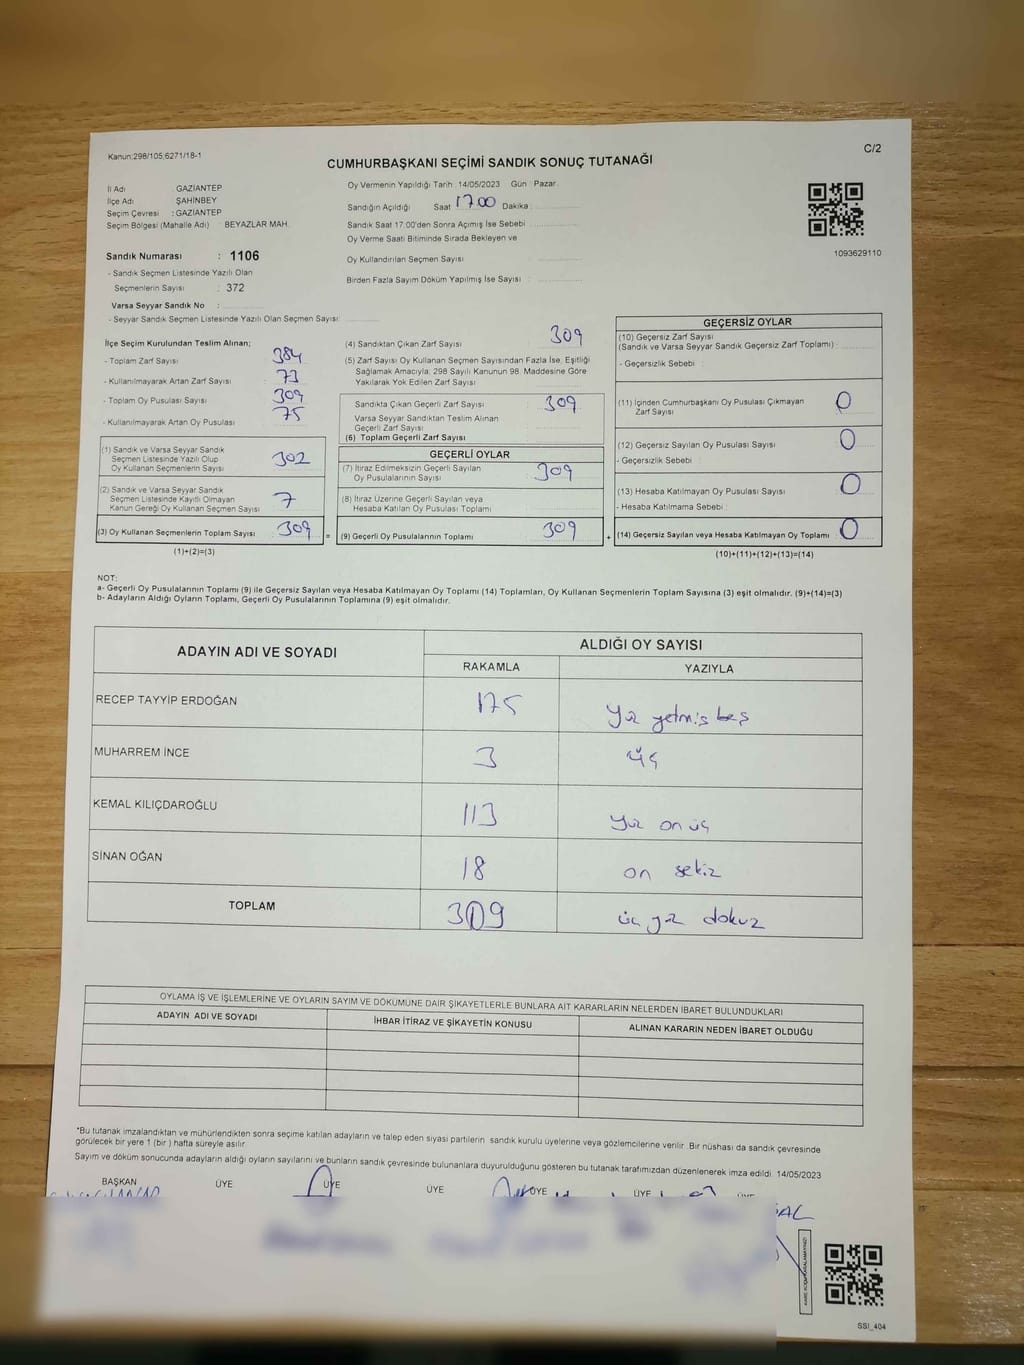 Kanun:298/105;6271/18-1
C/2
CUMHURBAŞKANI SEÇİMİ SANDIK SONUÇ TUTANAĞI
İl Adı GAZİANTEP
İlçe Adı ŞAHİNBEY
Seçim Çevresi : GAZİANTEP
Seçim Bölgesi (Mahalle Adı) BEYAZLAR MAH.
Oy Vermenin Yapıldığı Tarih :14/05/2023 Gün : Pazar
Sandığın Açıldığı Saat 17.00 Dakika
Sandık Saat 17:00'den Sonra Açımış İse Sebebi
Oy Verme Saati Bitiminde Sırada Bekleyen ve
Oy Kullandırılan Seçmen Sayısı
Birden Fazla Sayım Döküm Yapılmış İse Sayısı :
1093629110
Sandık Numarası : 1106
- Sandık Seçmen Listesinde Yazılı Olan
Seçmenlerin Sayısı : 372
Varsa Seyyar Sandık No :
- Seyyar Sandık Seçmen Listesinde Yazılı Olan Seçmen Sayısı:
İlçe Seçim Kurulundan Teslim Alınan;
- Toplam Zarf Sayısı 384
- Kullanılmayarak Artan Zarf Sayısı 73
- Toplam Oy Pusulası Sayısı 309
- Kullanılmayarak Artan Oy Pusulası 75
(1) Sandık ve Varsa Seyyar Sandık
Seçmen Listesinde Yazılı Olup
Oy Kullanan Seçmenlerin Sayısı 302
(2) Sandık ve Varsa Seyyar Sandık
Seçmen Listesinde Kayıtlı Olmayan
Kanun Gereği Oy Kullanan Seçmen Sayısı 7
(3) Oy Kullanan Seçmenlerin Toplam Sayısı 309
(1)+(2)=(3)
=
(4) Sandıktan Çıkan Zarf Sayısı 309
(5) Zarf Sayısı Oy Kullanan Seçmen Sayısından Fazla İse, Eşitliği
Sağlamak Amacıyla; 298 Sayılı Kanunun 98. Maddesine Göre
Yakılarak Yok Edilen Zarf Sayısı
Sandıkta Çıkan Geçerli Zarf Sayısı 309
Varsa Seyyar Sandıktan Teslim Alınan
Geçerli Zarf Sayısı
(6) Toplam Geçerli Zarf Sayısı
GEÇERLİ OYLAR
(7) İtiraz Edilmeksizin Geçerli Sayılan
Oy Pusulalarının Sayısı 309
(8) İtiraz Üzerine Geçerli Sayılan veya
Hesaba Katılan Oy Pusulası Toplamı
(9) Geçerli Oy Pusulalarının Toplamı 309
+
GEÇERSİZ OYLAR
(10) Geçersiz Zarf Sayısı
(Sandık ve Varsa Seyyar Sandık Geçersiz Zarf Toplamı) :
- Geçersizlik Sebebi :
(11) İçinden Cumhurbaşkanı Oy Pusulası Çıkmayan
Zarf Sayısı 0
(12) Geçersiz Sayılan Oy Pusulası Sayısı 0
- Geçersizlik Sebebi :
(13) Hesaba Katılmayan Oy Pusulası Sayısı 0
- Hesaba Katılmama Sebebi :
(14) Geçersiz Sayılan veya Hesaba Katılmayan Oy Toplamı 0
(10)+(11)+(12)+(13)=(14)
NOT:
a- Geçerli Oy Pusulalarının Toplamı (9) ile Geçersiz Sayılan veya Hesaba Katılmayan Oy Toplamı (14) Toplamları, Oy Kullanan Seçmenlerin Toplam Sayısına (3) eşit olmalıdır. (9)+(14)=(3)
b- Adayların Aldığı Oyların Toplamı, Geçerli Oy Pusulalarının Toplamına (9) eşit olmalıdır.
ADAYIN ADI VE SOYADI
ALDIĞI OY SAYISI
RAKAMLA YAZIYLA
RECEP TAYYİP ERDOĞAN 175 Yüz yetmiş beş
MUHARREM İNCE 3 üç
KEMAL KILIÇDAROĞLU 113 Yüz on üç
SİNAN OĞAN 18 on sekiz
TOPLAM 309 üç yüz dokuz
OYLAMA İŞ VE İŞLEMLERİNE VE OYLARIN SAYIM VE DÖKÜMÜNE DAİR ŞİKAYETLERLE BUNLARA AİT KARARLARIN NELERDEN İBARET BULUNDUKLARI
ADAYIN ADI VE SOYADI İHBAR İTİRAZ VE ŞİKAYETİN KONUSU ALINAN KARARIN NEDEN İBARET OLDUĞU
*Bu tutanak imzalandıktan ve mühürlendikten sonra seçime katılan adayların ve talep eden siyasi partilerin sandık kurulu üyelerine veya gözlemcilerine verilir. Bir nüshası da sandık çevresinde
görülecek bir yere 1 (bir ) hafta süreyle asılır.
Sayım ve döküm sonucunda adayların aldığı oyların sayılarını ve bunların sandık çevresinde bulunanlara duyurulduğunu gösteren bu tutanak tarafımızdan düzenlenerek imza edildi. 14/05/2023
BAŞKAN ÜYE ÜYE ÜYE ÜYE ÜYE ÜYE
SSI_404